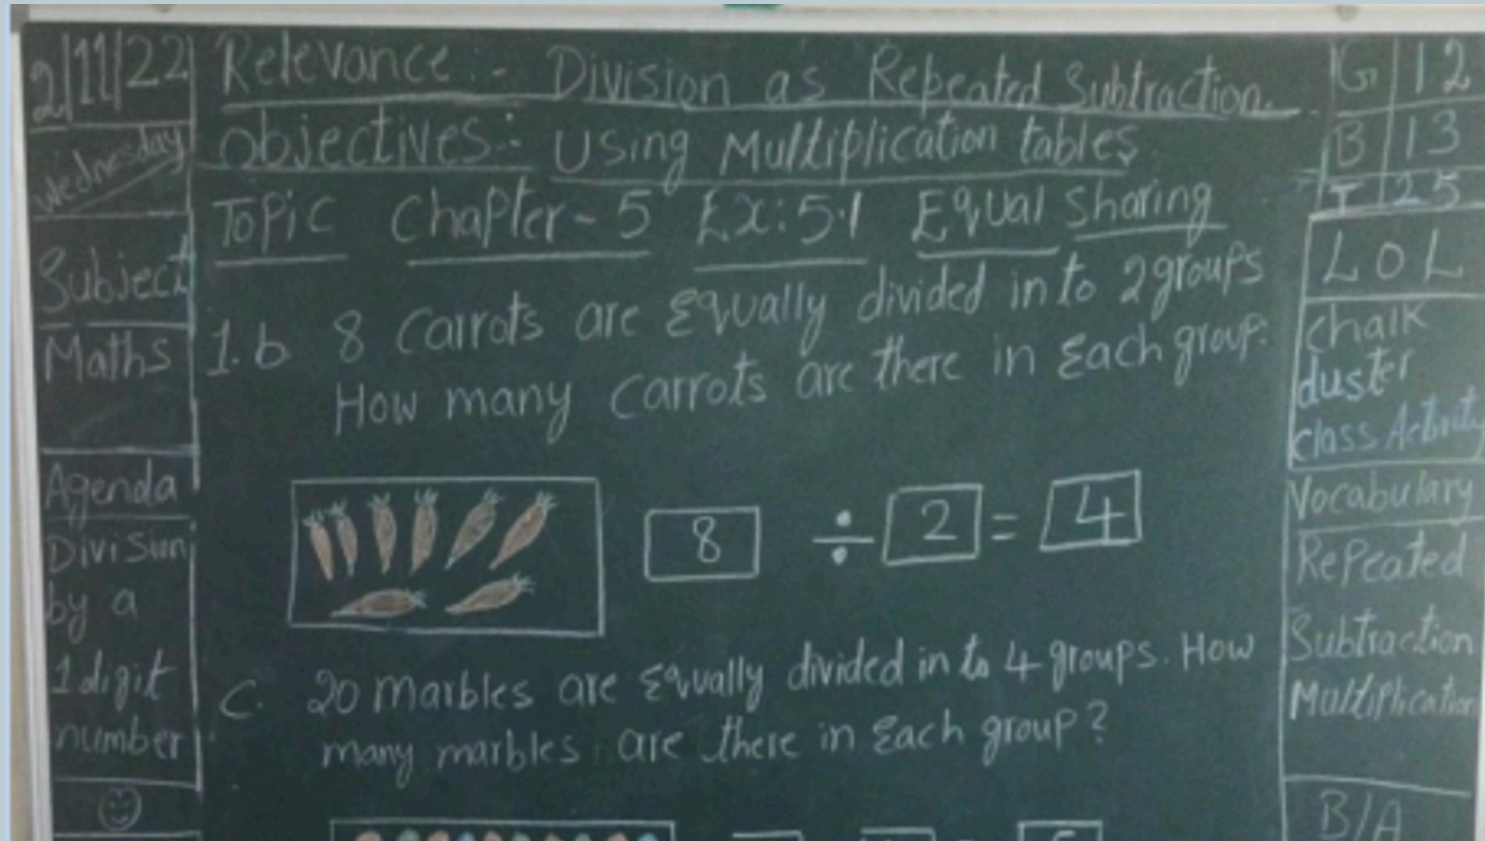 2/11/22
Wednesday
Subject
Maths
Agenda
Division
by a
1 digit
number
Relevance:- Division as Repeated Subtraction.
Objectives:- Using Multiplication tables
Topic Chapter-5 Ex:5.1 Equal Sharing
1.b 8 Carrots are Equally divided in to 2 groups
How many carrots are there in Each group.
8 ÷ 2 = 4
C. 20 Marbles are Equally divided in to 4 groups. How
many marbles are there in Each group?
G 12
B 13
T 25
LOL
Chalk
duster
class Activity
Vocabulary
Repeated
Subtraction
Multiplication
B/A